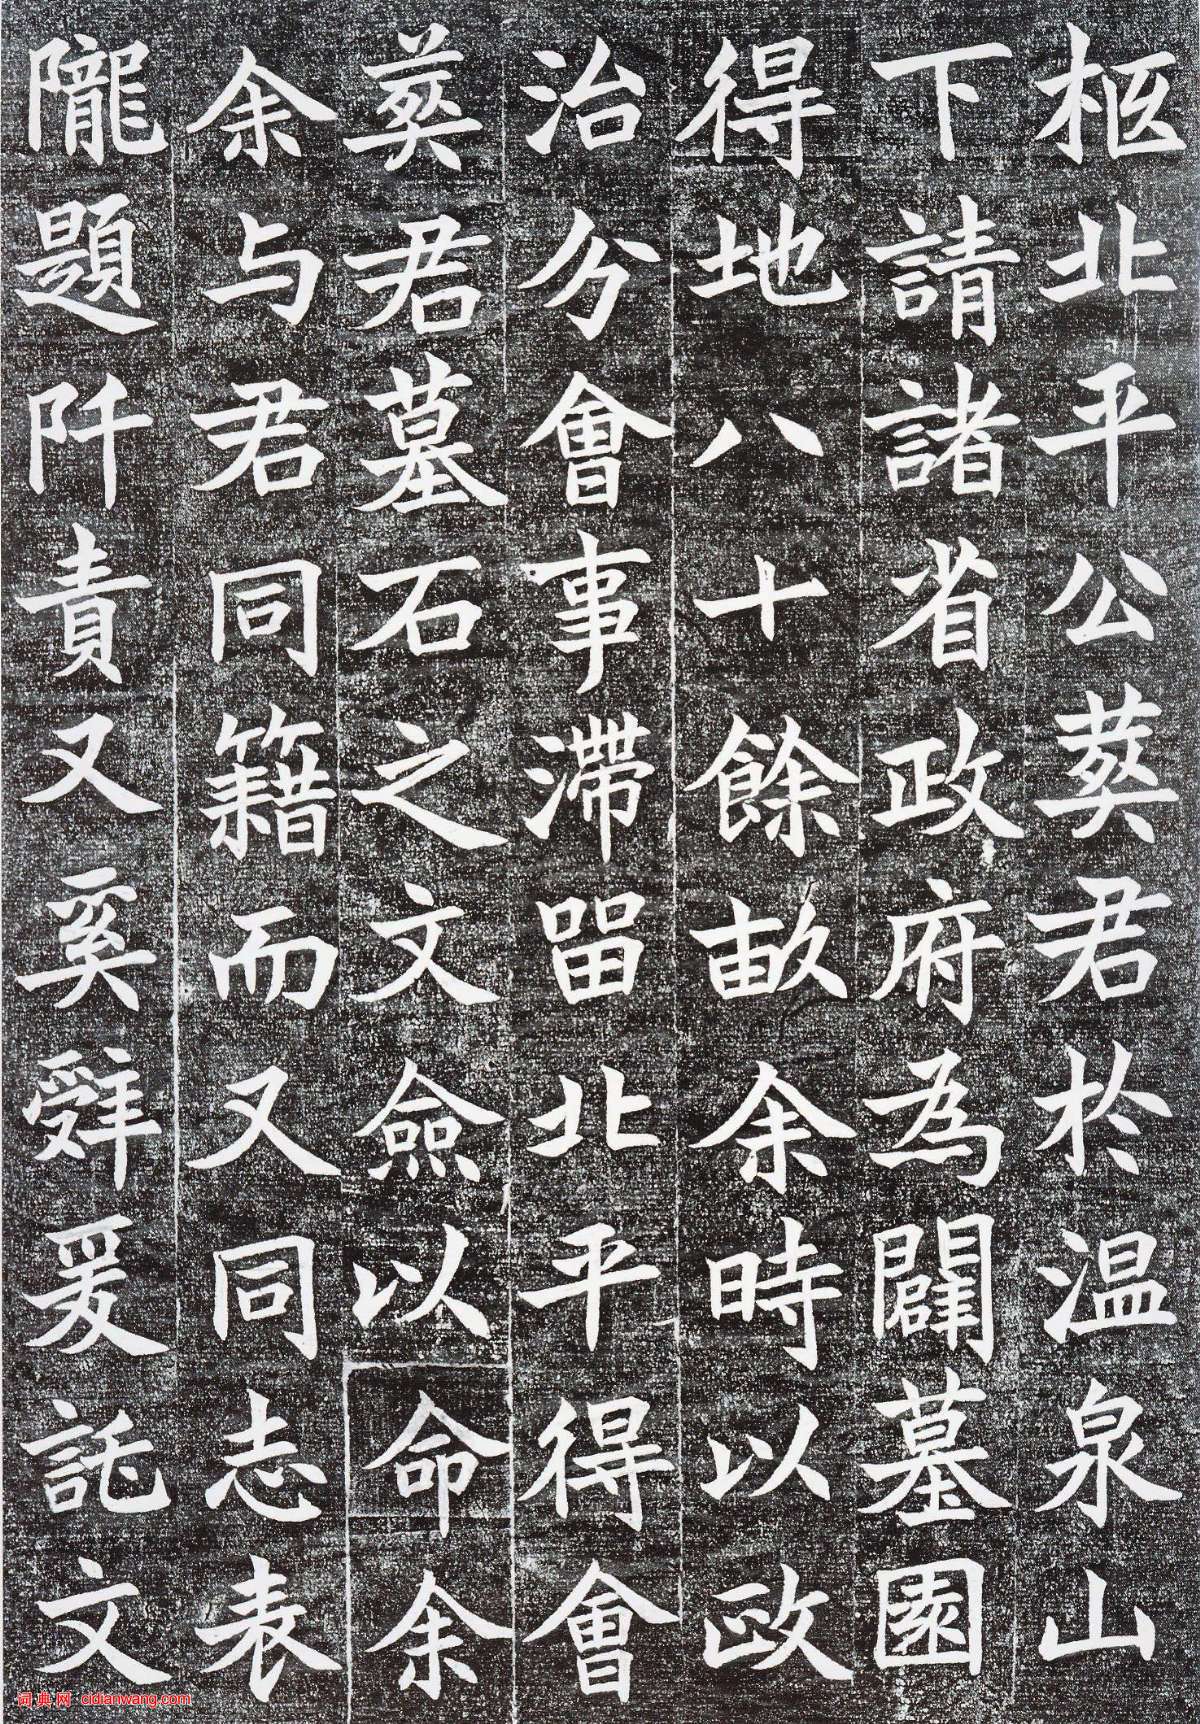 柩北平公葬君於温泉山
下請諸省政府為闢墓園
得地八十餘畝余時以政
治分會事滯留北平得會
葬君墓石之文僉以命余
余与君同籍而又同志表
隴題阡責又奚辤爰託文
词典网 cidianwang.com